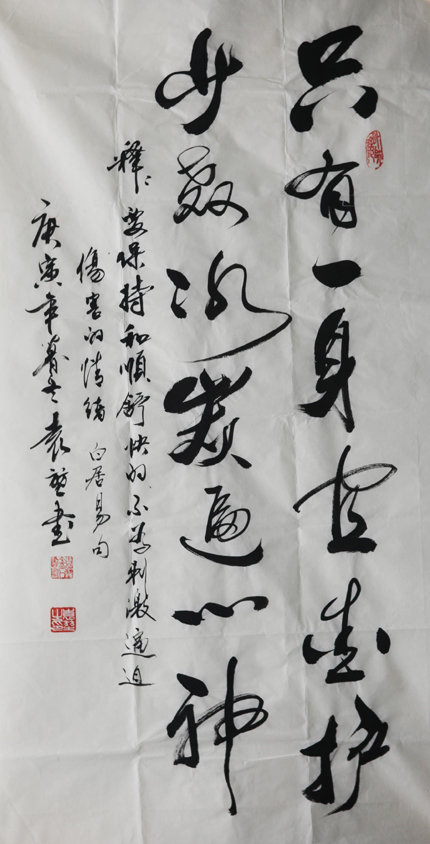 只有一身宜爱护
少教冰炭逼心神
释：要保持和顺舒快的不要刺激逼迫
伤害的情绪 白居易句
庚寅年暮冬 袁 书